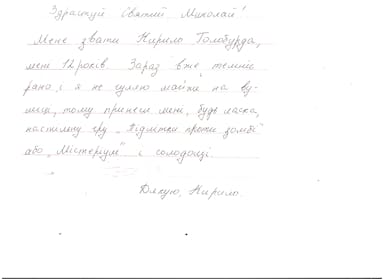 Здрастуй Святий Миколай!
Мене звати Кирило Голобурда,
мені 12 років. Зараз вже темніє
рано і я не гуляю майже на ву-
лиці, тому принеси мені, будь ласка,
настільну гру „Підлітки проти зомбі"
або „Містеріум" і солодощі.
Дякую, Кирило.